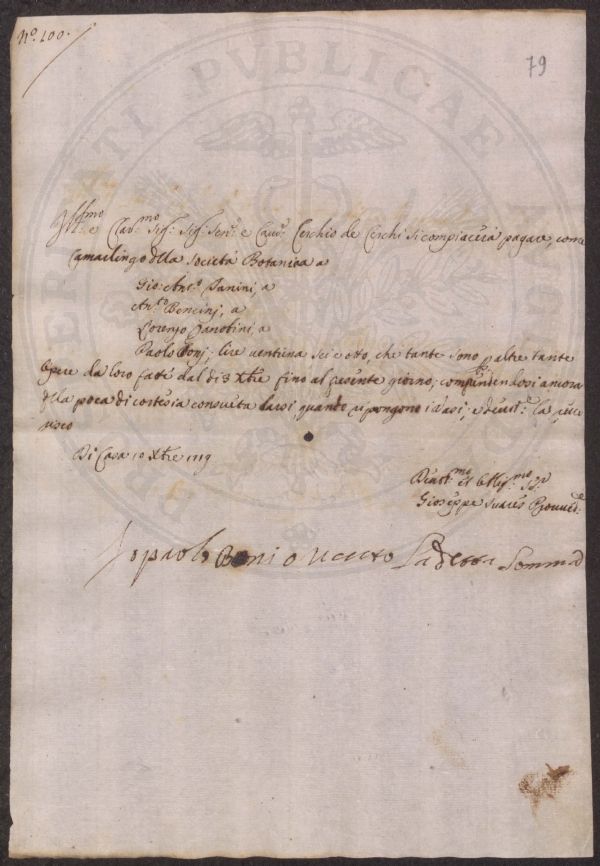 N.º 100.
79
Ill.mo e Clar.mo Sig.r Sig.r Sen.re e Cav.re Cerchio de Cerchi si compiacerà pagare, come
Camarlingo della Società Botanica a
Gio: Ant.o Janini, a
Ant.o Boncinj, a
Lorenzo Zanobini, a
Paolo Bonj: lire ventuna sei e otto, che tante sono p altre tante
Opere da loro fatte dal di 3 Xbre fino al presente giorno, comprendendosi ancora
della poca di cortesia consueta darsi quando si pongono i Vasi, e
Di Casa 10 Xbre 1719
Giuseppe Suares Provved.re
Io paolo Boni o riceuto La detta Somma
PVBLICAE